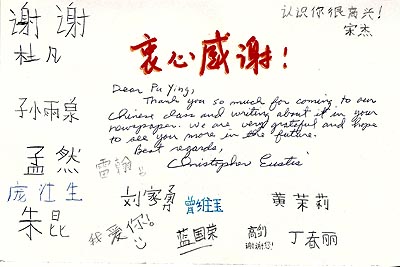 谢谢
杜凡
认识你很高兴！
宋杰
衷心感谢！
Dear Pu Ying,
Thank you so much for coming to our
Chinese class and writing about it in your
newspaper. We are very grateful and hope
to see you more in the future.
Best regards,
Christopher Eustis
孙小雨泉
孟然
雷翰
庞仕生
朱昆
刘家勇
曾维玉
黄茉莉
我爱你！
蓝国荣
高剑
谢谢您！
丁春丽